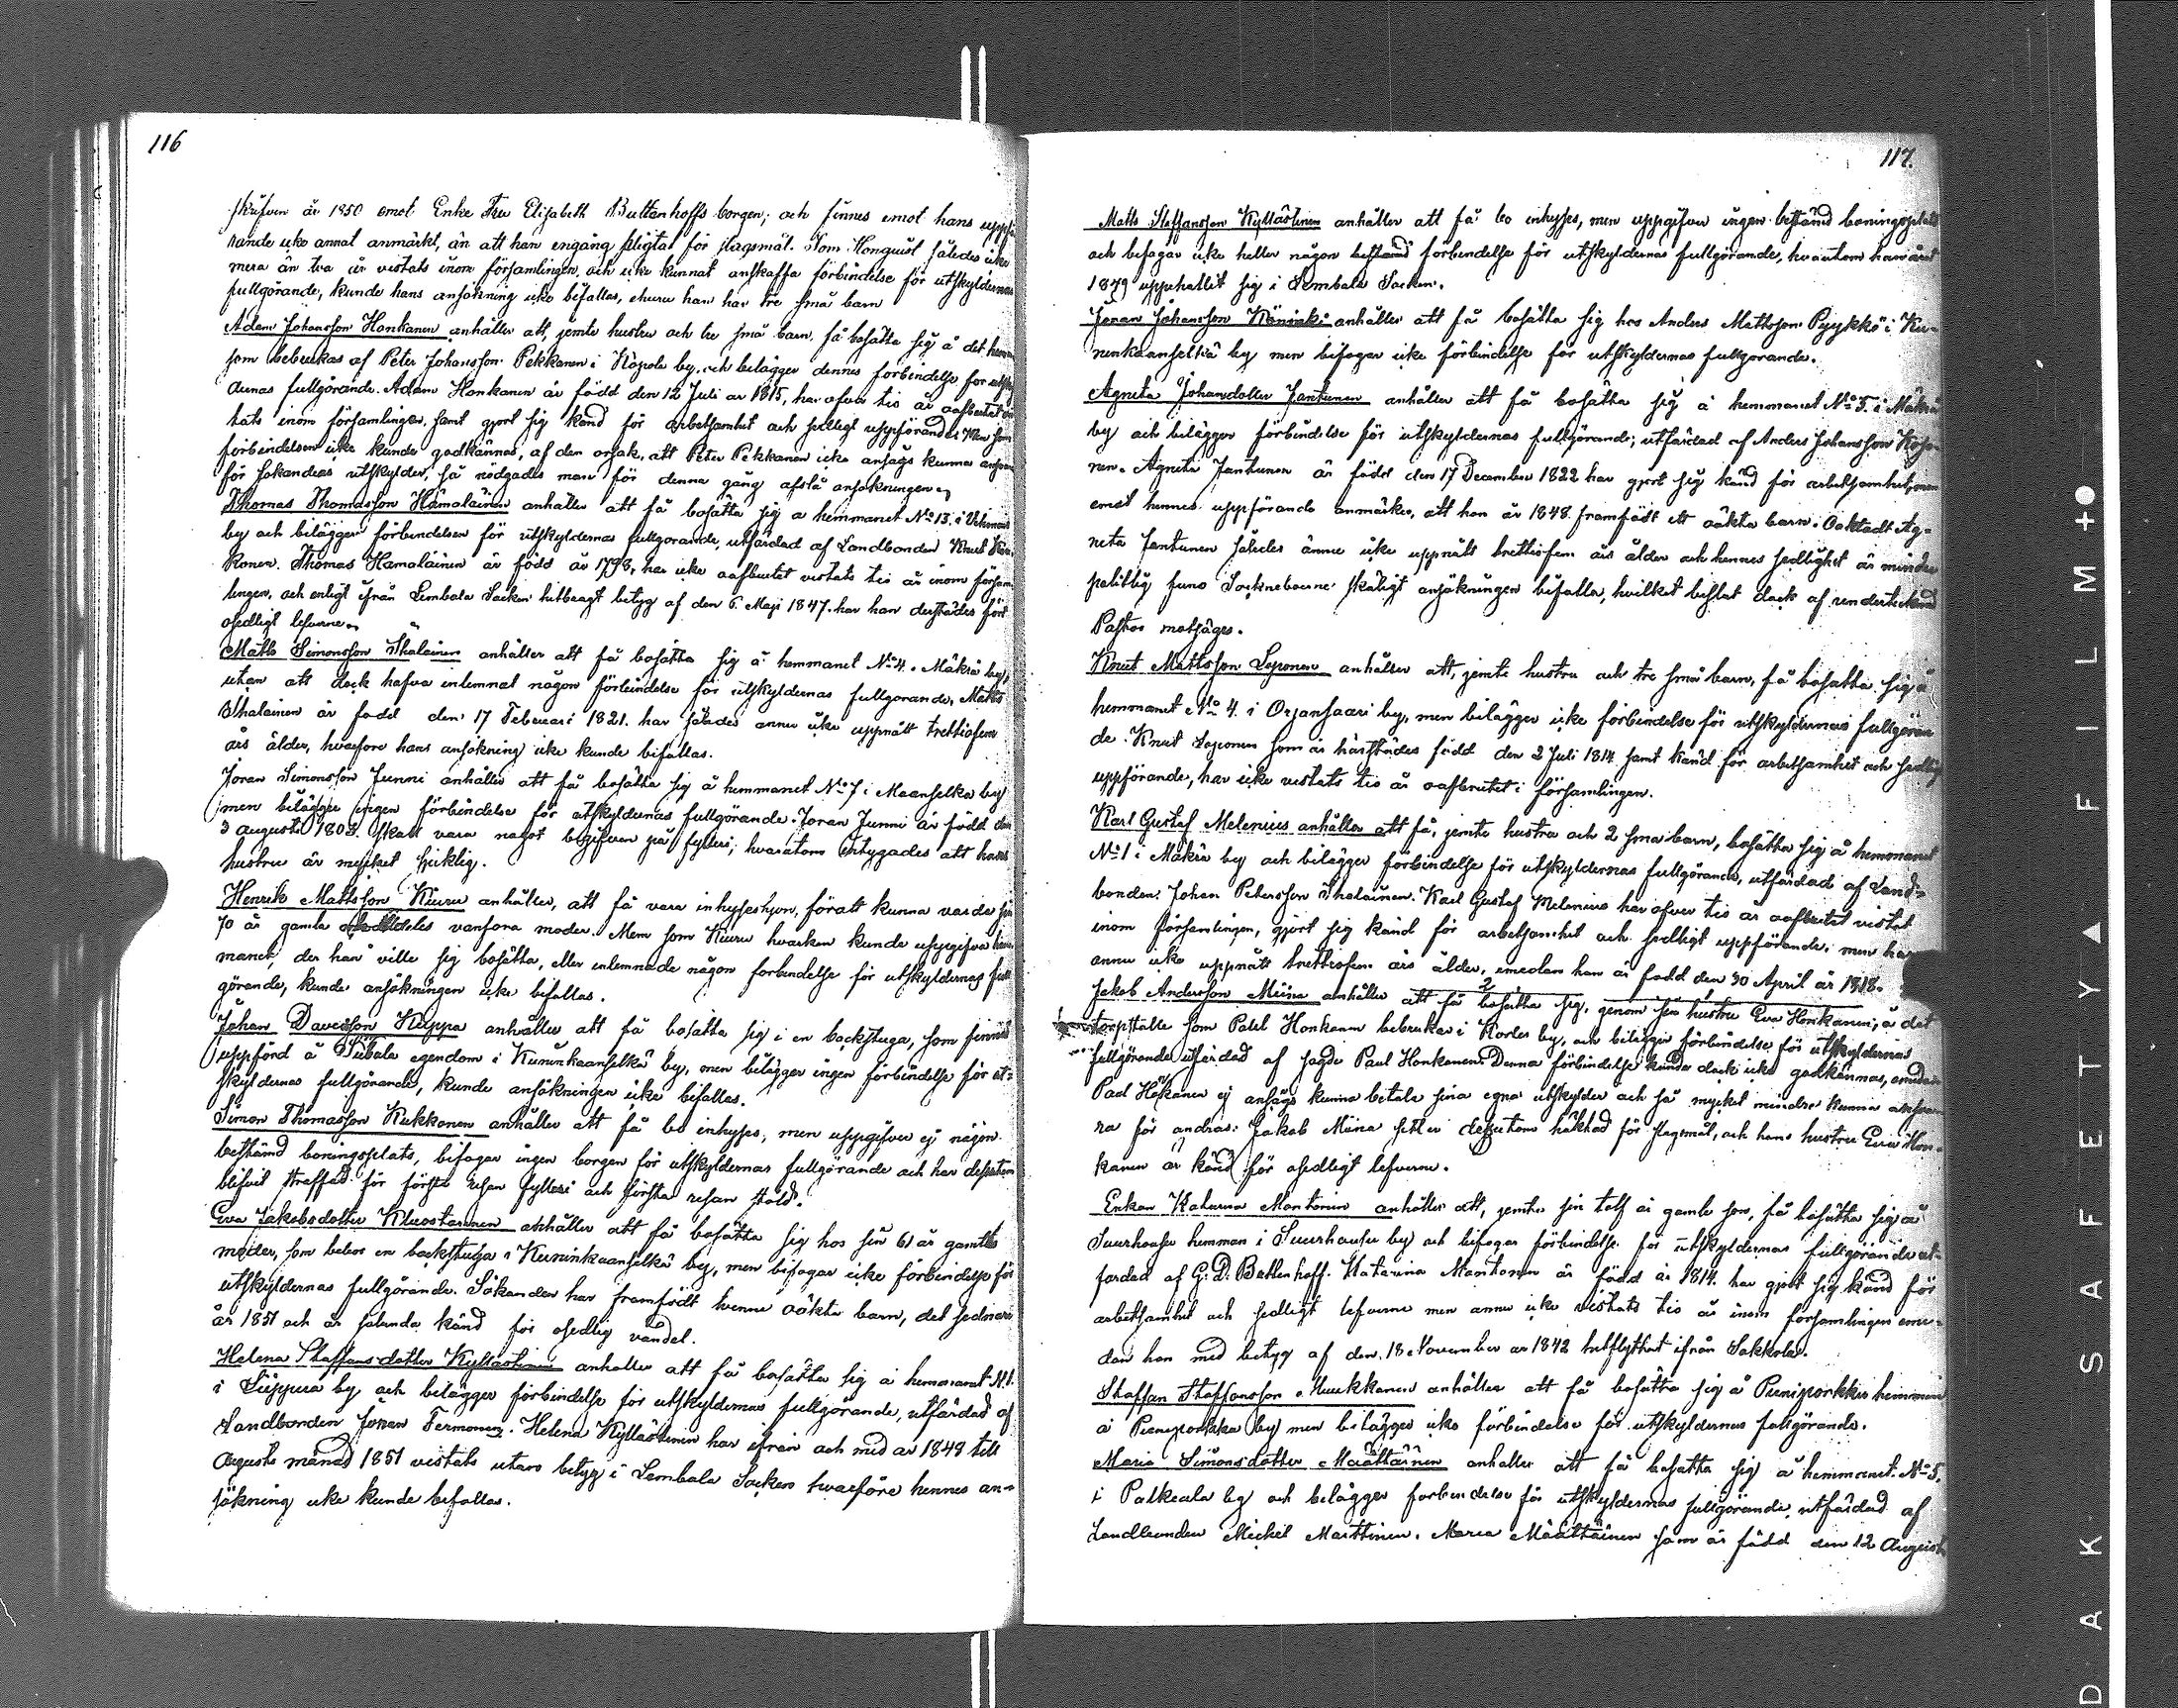 116
skrifven år 1850 emot Enke Fru Elisabeth Buttenhoffs borgen; och finnes emot hans uppfö-
rande icke annat anmärkt, än att han engång pligtat för slagsmål. Som Honquist således icke
mera än tva år vistats inom församlingen, och icke kunnat anskaffa förbindelse för utskyldernas
fullgörande, kunde hans ansökning icke bifallas, ehuru han har tre små barn
Adam Johansson Honkanen anhåller att, jemte hustru och tre små barn, få bosätta sig å det hem
som bebrukas af Peter Johansson Pekkanen i Näpola by, och bilägger dennes förbindelse for utskyl
dernas fullgörande. Adam Honkanen är född den 12 Juli ar 1815, har ofver tio år oafbrutet vis
tats inom församlingen, samt gjort sig känd för arbetsamhet och sedligt uppförande. Men som
förbindelsen icke kunde godkännas, af den orsak, att Peter Pekkanen icke ansågs kunna ansvara
för sökandens utskylder, så nödgades man för denna gång afslå ansökningen.
Thomas Thomasson Hämäläinen anhåller att få bosätta sig a hemmanet No 13. i
by och bilägger förbindelsen för utskyldernas fullgorande, utfärdad af Landbonden Knut
konen. Thomas Hamalainen är född år 1798, har icke oafbrutet vistats tio år inom försam
lingen, och enligt ifrån Lembala Socken hitbragt betyg af den 6. Maji 1847. har han derstädes fört
osedligt lefverne.
Matts Simonsson Ihalainen anhåller att få bosätta sig å hemmanet No 4. i Mäkrä by,
utan att dock hafva inlemnat någon förbindelse för utskyldernas fullgorande, Matts
Ihalainen är fodd den 17 Februari 1821. har således annu icke uppnått trettiofem
års ålder, hvarfore hans ansökning icke kunde bifallas.
Joran Simonsson Junni anhåller att få bosätta sig å hemmanet No 7 i Maanselka by
men bilägger ingen förbindelse för utskyldernas fullgörande. Joran Junni är född den
3 augusti 1803. skall vara något begifven på fylleri; hvarutom intygades att hans
hustru är mycket sjuklig.
Henrik Mattsson Kiuru anhåller, att få vara inhyseshjon, föratt kunna vårda sin
70 år gamla alldeles vanfora moder. Men som Kiuru hvarken kunde uppgifva hem
manet, der han ville sig bosätta, eller inlemnade någon forbindelse för utskyldernas full
görande, kunde ansökningen icke bifallas.
Johan Davidsson Kuppa anhåller att få bosätta sig i en backstuga, som finnes
uppförd å Tubala egendom i Kuninkaanselkä by, men bilägger ingen förbindelse för ut-
skyldernas fullgörande, kunde ansökningen icke bifallas.
Simon Thomasson Kukkonen anhåller att få bo inhyses, men uppgifver ej någon
bestämd boningsplats, bifogar ingen borgen för utskyldernas fullgörande och har dessutom
blifvit straffad för första resan fylleri och första resan stöld.
Eva Jakobsdotter Kluostarinen anhåller att få bosätta sig hos sin 61 år gamla
moder, som bebor en backstuga i Kuninkaanselkä by, men bifogar icke förbindelse för
utskyldernas fullgörande. Sökanden har framfödt tvenne oäkta barn, det sednare
år 1851 och är sålunda känd för osedlig vandel.
Helena Staffansdotter Kyllästinen anhaller att få bosätta sig å hemmanet N.1.
i Suppua by och bilägger förbindelse for utskyldernas fullgörande, utfärdad af
Landbonden Jöran Termonen. Helena Kyllästinen har ifrån och med ar 1848 till
Augusti månad 1851 vistats utan betyg i Lembala Socken hvarföre hennes an-
sökning icke kunde bifallas.
117.
Matts Steffansson Kyllästinen anhåller att få bo inhyses, men uppgifver ingen bestämd boningsplats
och bifogar icke heller någon bestämd förbindelse för utskyldernas fullgörande, hvarutom han
1849 uppehallit sig i Lembala Socken.
Jöran Johansson anhåller att få bosätta sig hos Anders Mattsson Pyykkö i Ku-
ninkaanselkä by men bifogar icke förbindelse for utskyldernas fullgorande.
Agneta Johansdotter Jantunen anhåller att få bosätta sig å hemmanet No 5. i Mäkrä
by och bilägger förbindelse för utskyldernas fullgörande; utfärdad af Anders Johansson
nen. Agneta Jantunen är född den 17 December 1822 har gjort sig känd för arbetsamhet, men
emot hennes uppförande anmärkes, att hon år 1848. framfödt ett oäkta barn. Oaktadt Ag-
neta Jantunen således ännu icke uppnått trettiofem års ålder och hennes sedlighet är mindre
palitlig funo Socknеboerne skäligt ansökningen bifalla, hvilket beslut dock af undertecknad
Pastor motsäges.
Knut Mattsson Loponen anhåller att, jemte hustru och tre små barn, få bosatta sig å
hemmanet No 4. i Orjansaari by, men bilägger icke förbindelse för utskyldernas fullgöran
de. Knut Loponen som är härstädes född den 2 Juli 1814 samt känd för arbetsamhet och sedligt
uppförande, har icke vistats tio år oafbrutet i församlingen.
Karl Gustaf Melenius anhåller att få, jemte hustru och 2 sma barn, bosätta sig å hemmanet
No 1 i Mäkrä by och bilägger förbindelse för utskyldernas fullgörande, utfärdad af Land-
bonden Johan Petersson Ihalainen. Karl Gustaf Melenius har ofver tio år oafbrutet vistat
inom församlingen, gjort sig känd för arbetsamhet och sedligt uppförande; men har
annu icke uppnått trettiofem års ålder, emedan han är fodd den 30 April år 1818.
Jakob Andersson Miina anhåller att få bosätta sig, genom sin hustru Eva Honkanen, å det
torpställe som Patel Honkanen bebrukar i Korles by, och bilägger förbindelse för utskyldernas
fullgörande utfärdad af sagde Paul Honkanen. Denna förbindelse kunde dock icke godkännas, emedan
Paul Hökänen ej ansågs kunna betala sina egna utskylder och så mycket mindre kunna ansva
ra för andras. Jakob Miina sitter dessutom häktad för slagsmål, och hans hustru Eva Hon-
kanen är känd för osedligt lefverne.
Enkan Katarina Montonen anhåller att, jemte sin tolf år gamle son, få bosätta sig å
Suurhousu hemman i Suurhousu by och bifogar förbindelse för utskyldernas fullgörande ut-
fardad af G. D. Buttenhoff. Katarina Montonen är född år 1814. har gjort sig känd för
arbetsamhet och sedligt lefverne men annu icke vistats tio år inom församlingen eme-
dan hon med betyg af den 18 November ar 1842 hitflyttat ifrån Sakkola.
Staffan Staffansson Muukkonen anhåller att få bosätta sig å Pieniporkku hemman
å Pieniporkka by men bilägger icke förbindelse för utskyldernas fullgörande.
Maria Simonsdotter Määttäinen anhåller att få bosatta sig å hemmanet No 5.
i Palkeala by och bilägger forbindelse för utskyldernas fullgörande, utfärdad af
Landbonden Michel Marttinen. Maria Määttäinen som är född den 12 Augusti
D A K S A F E T Y F I L M